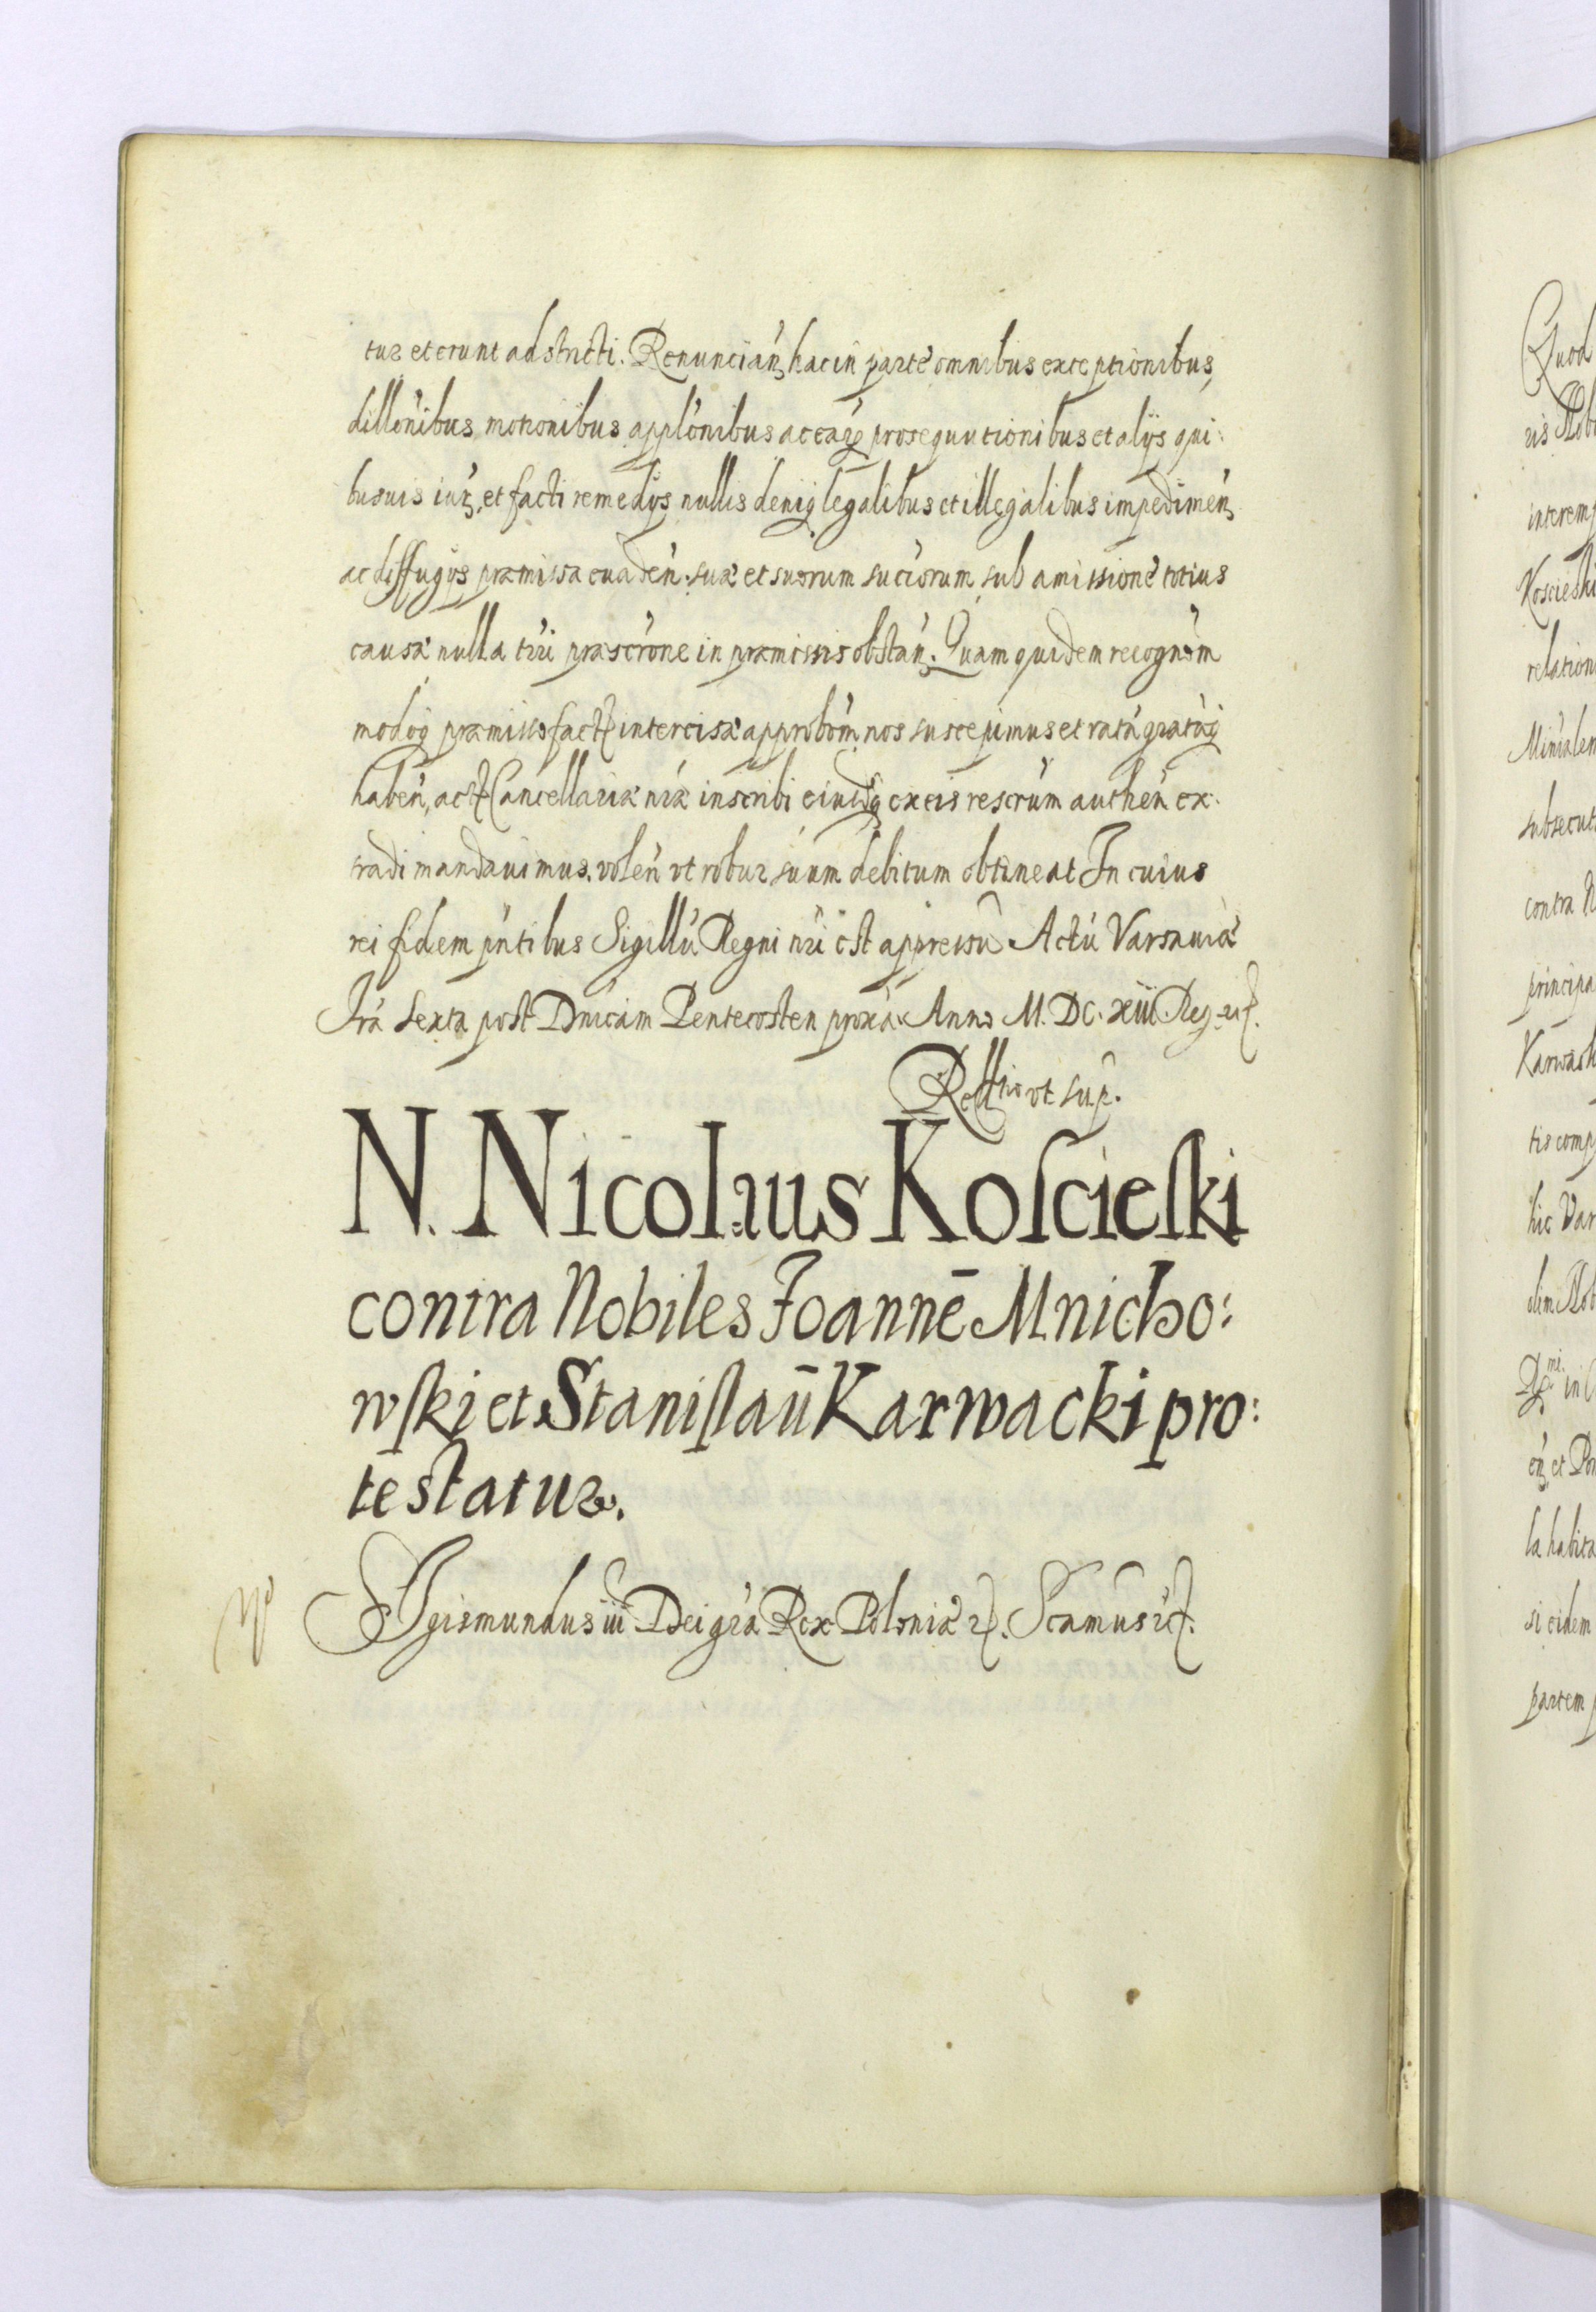 tur et erunt adstricti. Renuncian̄ hac in parte omnibus exceptionibus,
dillōnibus motionibus applōnibus ac earū prosequutionibus et alijs qui
busuis iur̄, et facti remedijs nullis deniq̨ legalibus et illegalibus impedimen̄
ac diffugijs præmissa euaden̄. suæ et suorum succ̄orum sub amissione totius
causæ nulla tr̄ri præscr̄one in præmissis obstan̄. Quam quidem recognōm
modoq̨ præmisso factę intercisæ approbōm nos suscepimus et ratū gratūq̨
haben̄, actę Cancellariæ nr̄æ inscribi eiusdq̨ ex eis rescr̄um authen̄ ex
tradi mandauimus. volen̄ vt robur suum debitum obtineat In cuius
rei fidem pn̄tibus Sigillū Regni nr̄i ēst appressū Actū Varsauiæ
Fr̄a sexta post Dn̄icam Pentecosten proxa. Anno M. DC. XIII Reg. ut
Rellatio vt sup.
N. Nicolaus Koſcieſki
contra Nobiles Joannē Mnicho:
wſki et Staniſlaū Karwacki pro:
testatur.
SIgismundus iii Dei grā Rex Poloniæ &. Scamus &.
Quod
ris Nob
interemp
Koscieski
relation
subsecut
contra N
principa
tis comp
hic Var
olim Nob
in
et
la habita
si eidem
partem p